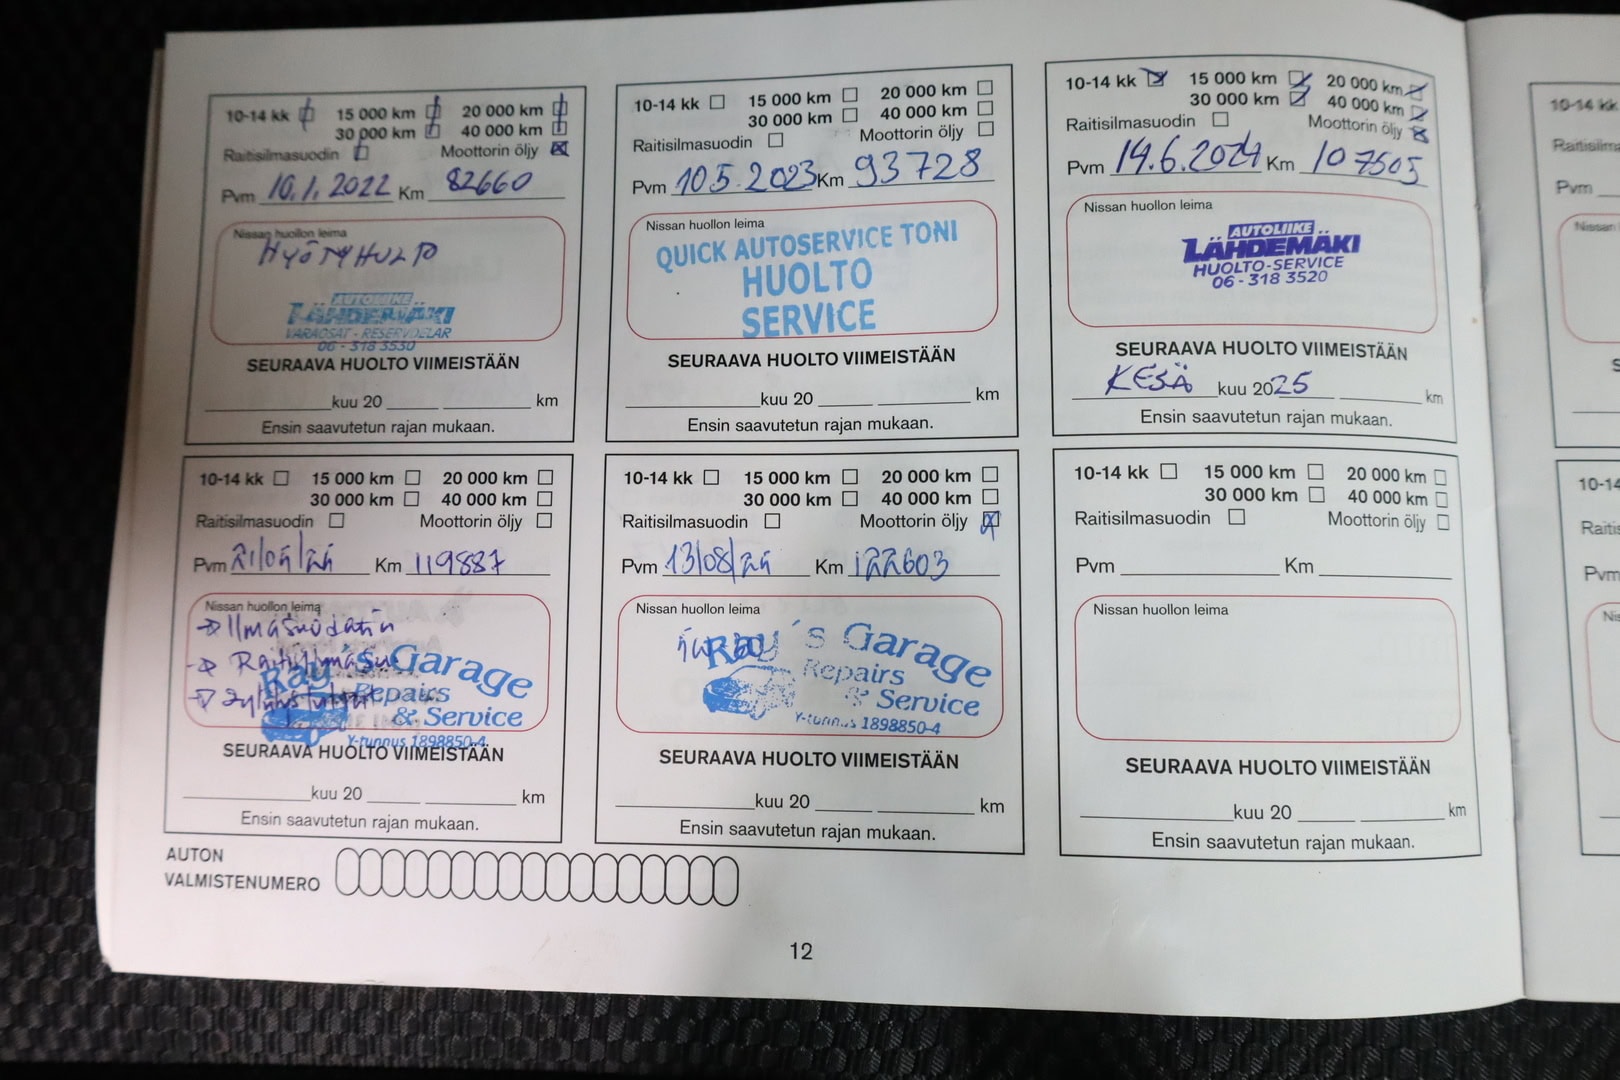 10-14 kk 15 000 km 20 000 km
30 000 km 40 000 km
Raitisilmasuodin Moottorin öljy
Pvm 10.1.2022 Km 82660
Nissan huollon leima
HYÖTYHUOLTO
AUTOLIIKE
LÄHDEMÄKI
VARAOSAT - RESERVDELAR
06 - 318 3530
SEURAAVA HUOLTO VIIMEISTÄÄN
kuu 20 km
Ensin saavutetun rajan mukaan.
10-14 kk 15 000 km 20 000 km
30 000 km 40 000 km
Raitisilmasuodin Moottorin öljy
Pvm 10.5.2023 Km 93728
Nissan huollon leima
QUICK AUTOSERVICE TONI
HUOLTO
SERVICE
SEURAAVA HUOLTO VIIMEISTÄÄN
kuu 20 km
Ensin saavutetun rajan mukaan.
10-14 kk 15 000 km 20 000 km
30 000 km 40 000 km
Raitisilmasuodin Moottorin öljy
Pvm 14.6.2024 Km 107505
Nissan huollon leima
AUTOLIIKE
LÄHDEMÄKI
HUOLTO-SERVICE
06 - 318 3520
SEURAAVA HUOLTO VIIMEISTÄÄN
KESÄ kuu 2025 km
Ensin saavutetun rajan mukaan.
10-14 kk 15 000 km 20 000 km
30 000 km 40 000 km
Raitisilmasuodin Moottorin öljy
Pvm Km 119887
Nissan huollon leima
Ilmasuodatin
Ray´s Garage
Repairs
& Service
Y-tunnus 1898850-4
SEURAAVA HUOLTO VIIMEISTÄÄN
kuu 20 km
Ensin saavutetun rajan mukaan.
10-14 kk 15 000 km 20 000 km
30 000 km 40 000 km
Raitisilmasuodin Moottorin öljy
Pvm Km 122603
Nissan huollon leima
Ray´s Garage
Repairs
& Service
Y-tunnus 1898850-4
SEURAAVA HUOLTO VIIMEISTÄÄN
kuu 20 km
Ensin saavutetun rajan mukaan.
10-14 kk 15 000 km 20 000 km
30 000 km 40 000 km
Raitisilmasuodin Moottorin öljy
Pvm Km
Nissan huollon leima
SEURAAVA HUOLTO VIIMEISTÄÄN
kuu 20 km
Ensin saavutetun rajan mukaan.
AUTON
VALMISTENUMERO
12
10-14 kk
Pvm
Nissan